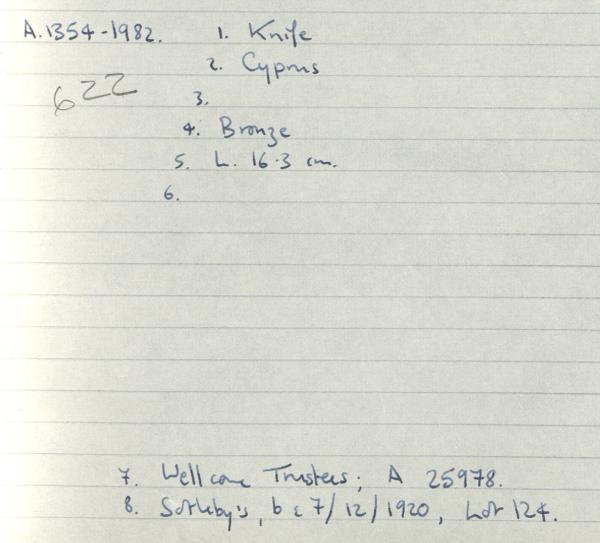 A.1354-1982. 1. Knife
2. Cyprus
622
3.
4. Bronze
5. L. 16.3 cm.
6.
7. Wellcome Trustees; A 25978.
8. Sotheby's, 6 & 7/12/1920, Lot 124.